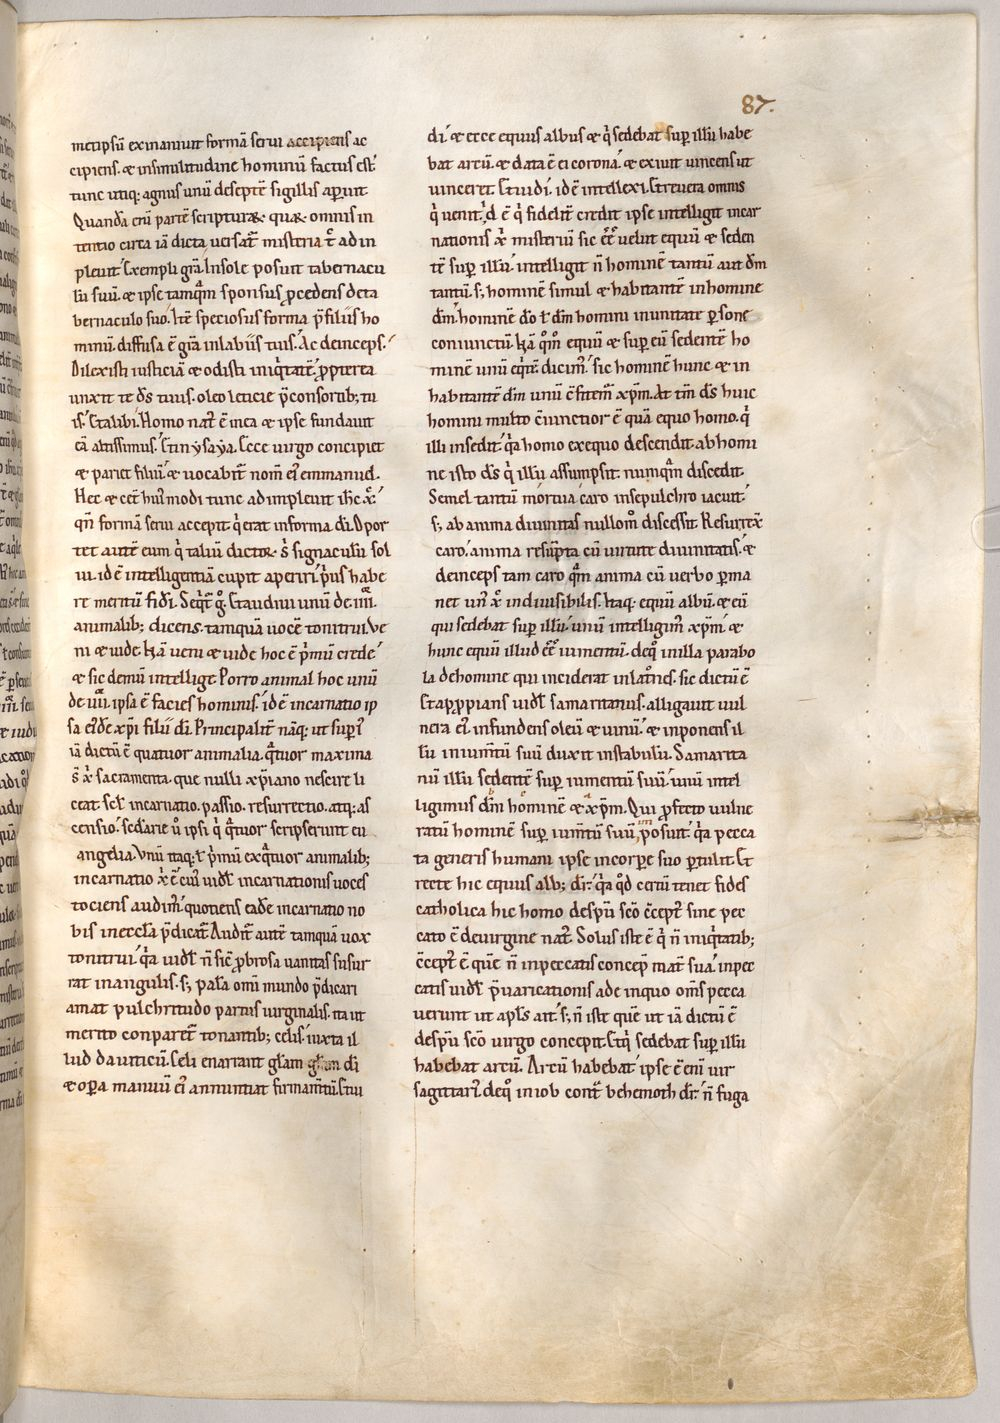 87.
metipsū exinaniuit formā serui accipiens ac
cipiens. & insimilitudine hominū factus est.
tunc utiq; agnus unū deseptē sigillis apuit
Quandā eni partē scripturæ. quæ omnis in
tentio circa iā dicta uersat̄ misteria t̄ adin
pleuit. Exempli gr̄a. Insole posuit tabernacu
lū suū. & ipse tamqm̄ sponsus pcedens deta
bernaculo suo. Itē speciosus forma p̄ filiis ho
minū. diffusa ē gr̄a inlabiis tuis. Ac deinceps.
Dilexisti iusticiā & odisti iniqtatē. ppterea
unxit te d̄s tuus. oleo leticie p̄consortib; tu
is. Et alibi. Homo nat' ē in ea & ipse fundauit
eā altissimus. Et in ysaya. Ecce uirgo concipiet
& pariet filiū. & uocabit̄ nom̄ ei' emmanuel.
Hec & cet̄ hui'modi tunc adimpleuit ih̄c x̄.
qn̄ formā serui accepit q̇ erat informa di. Opor
tet autē eum q̇ taliū dictor s̄ signaculū sol
ui. id ē intelligentiā cupit aperiri. ṗus habe
re meritū fidi. Seqt̄ g̊. Et audiui unū de .iiii.
animalib; dicens. tamquā uocē tonitrui. Ve
ni & uide. Nā ueni & uide hoc ē ṗmū crede
& sic demū intellige. Porro animal hoc unū
de .iiii. ipsa ē facies hominis. id ē incarnatio ip
sa eide xp̄i filii di. Principalit̄ nāq; ut supi'
iā dictū ē quatuor animalia. quor maxima
s̄ x̄ sacramenta. que nulli xp̄iano nescire li
ceat. scl̄ incarnatio. passio. resurrectio. atq; as
censio. sedarie u̇ ipsi q̇ qtuor scripserunt eu
angelia. Vnū itaq; t̄ ṗmū ex qtuor animalib;
incarnatio x̄ ē. cui' uidl̄ incarnationis uoces
tociens audim'. quotiens eade incarnatio no
bis in ęccl̄a p̄dicat̄. Audit̄ autē tamquā uox
tonitrui. q̇a uidl̄ n̄ sic pbrosa uanitas susur
rat in angulis. s; palā omi mundo p̄dicari
amat pulchritudo partus uirginalis. ita ut
merito conparet̄ tonantib; celis. iuxta il
lud dauiticū. Celi enarrant gl̄am di
& opa manuū ei' annuntiat firmamtū. Et ui
di. & ecce equus albus & q̇ sedebat sup illū habe
bat arcū. & data ē ei corona. & exiuit uincens ut
uinceret. Et uidi. id ē intellexi. Et reuera omnis
q̇ uenit. id ē q̇ fidelit̄ credit ipse intelligit incar
nationis x̄ misteriū sic ēē. uelut equū & seden
tē sup illū. intelligit n̄ hominē tantū aut dm̄
tantū. s; hominē simul & habitantē inhomine
dm̄. hominē do t̄ dm̄ homini inunitate psone
coniunctū. Nā qm̊ equū & sup eū sedentē ho
minē unū eqtē dicim'. sic hominē hunc & in
habitantē dm̄ unū c̄fitem' xp̄m. At tm̄ d̄s huic
homini multo c̄iunctior ē quā equo homo. q̇
illi insedit. q̇a homo ex equo descendit. ab homi
ne isto d̄s q̇ illū assumpsit. numqm̄ discedit.
Semel tantū mortua caro insepulchro iacuit.
s; ab anima diuinitas nullom̊ discessit. Resurrex̄
caro. anima resūpta cū uirtute diuinitatis. &
deinceps tam caro qm̄ anima cū uerbo pma
net un' x̄ indiuisibilis. Itaq; equū albū. & eū
qui sedebat sup illū. unū intelligim' xp̄m. &
hunc equū illud ēē iumentū. deq̊ in illa parabo
la de homine qui inciderat in latrones. sic dictū ē
Et appians uidl̄ samaritanus. alligauit uul
nera ei' infundens oleū & uinū. & inponens il
lū in iumtū suū duxit in stabulū. Samarita
nū illū sedentē sup iumentū suū. unū intel
ligimus dm̄ hominē & xp̄m. Qui pfecto uulne
ratū hominē sup iumtū suū inposuit. q̇a pecca
ta generis humani ipse in corpe suo ptulit. Et
recte hic equus alb; dr̄. q̇a qd̊ certū tenet fides
catholica hic homo despū sc̄o c̄cept' sine pec
cato ē deuirgine nat'. Solus iste ē q̇ n̄ iniqtatib;
c̄cept' ē quē n̄ inpeccatis concep mat̄ sua. in pec
catis uidl̄ p̄uaricationis ade inquo om̄s pecca
uerunt ut apl̄s ait. s; n̄ iste quē ut iā dictū ē
despū sc̄o uirgo concepit. Et q̇ sedebat sup illū
habebat arcū. Arcū habebat. ipse ē eni uir
sagittari'. deq̊ in iob cont̄ behemoth dr̄. n̄ fuga